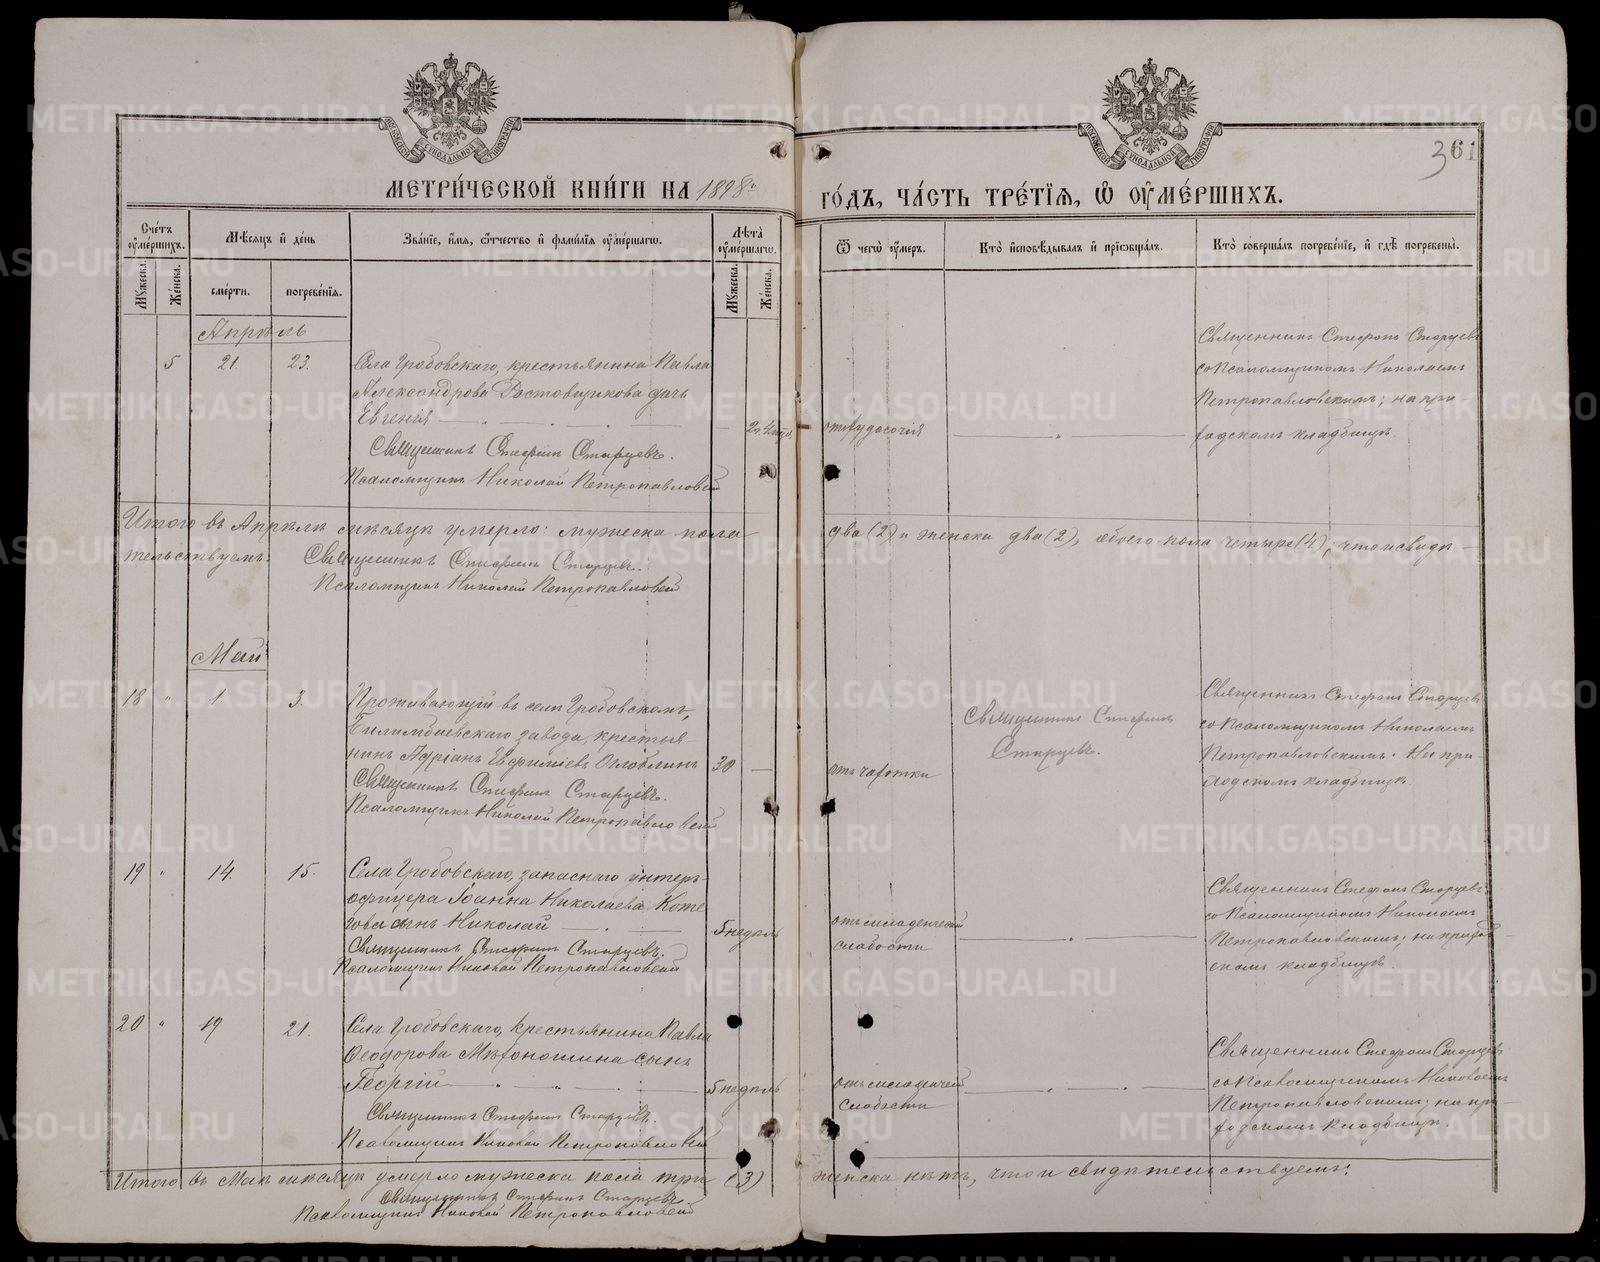 МЕТРИ́ЧЕСКОЙ КНИ́ГИ НА 1898й ГО́ДЪ, ЧА́СТЬ ТРЕ́ТЇѦ, Ѡ ОУ҆МЕ́РШИХЪ.
361
МОСКОВСКОЙ СѴНОДАЛЬНОЙ ТИПОГРАФІИ
МОСКОВСКОЙ СѴНОДАЛЬНОЙ ТИПОГРАФІИ
Сче́тъ оу҆ме́ршихъ.
Мꙋжеска.
Же́нска.
Мѣ́сѧцъ и҆ де́нь
сме́рти.
погребе́нїѧ.
Зва́нїе, и҆́мѧ, ѻ҆́тчество и҆ фами́лїѧ оу҆ме́ршагѡ.
Лѣ́та оу҆ме́ршагѡ.
Мꙋжеска.
Же́нска.
Ѿ чегѡ̀ оу҆́меръ.
Кто̀ и҆сповѣ́дывалъ и҆ прїѡбща́лъ.
Кто̀ соверша́лъ погребе́нїе, и҆ гдѣ̀ погребены̀.
Апрѣль
5 21. 23. Села Гробовскаго, крестьянина Павла
Александрова Ростовщикова дочь
Евгенія
Священникъ Стефанъ Старцевъ.
Псаломщикъ Николай Петропавловскій
Священникъ Стефанъ Старцевъ
со Псаломщикомъ Николаемъ
Петропавловскимъ; на при-
ходскомъ кладбищѣ
Итого въ Апрѣлѣ мѣсяцѣ умерло: мужеска пола два (2) и женска два (2), обоего пола четыре (4); что и свидѣ-
тельствуемъ. Священникъ Стефанъ Старцевъ.
Псаломщикъ Николай Петропавловскій
Май
18 " 1 3. Проживающій въ селѣ Гробовскомъ,
Билимбаевскаго завода, крестья-
нинъ Адріанъ Евфиміевъ Оглоблинъ 30 — отъ чахотки
Священникъ Стефанъ Старцевъ.
Псаломщикъ Николай Петропавловскій
Священникъ Стефанъ
Старцевъ.
Священникъ Стефанъ Старцевъ
со Псаломщикомъ Николаемъ
Петропавловскимъ. На при
ходскомъ кладбищѣ.
19 " 14. 15. Села Гробовскаго, запаснаго унтеръ-
офицера Іоанна Николаева Коте
гова сынъ Николай 5 недѣль
Священникъ Стефанъ Старцевъ.
Псаломщикъ Николай Петропавловскій
отъ младенческой
слабости
Священникъ Стефанъ Старцевъ
со Псаломщикомъ Николаемъ
Петропавловскимъ; на приход-
скомъ кладбищѣ.
20 " 19 21. Села Гробовскаго, крестьянина Павла
Ѳеодорова Мѣхоношина сынъ
Георгій 5 недѣль
Священникъ Стефанъ Старцевъ.
Псаломщикъ Николай Петропавловскій
отъ младенческой
слабости
Священникъ Стефанъ Старцевъ
со Псаломщикомъ Николаемъ
Петропавловскимъ; на при-
ходскомъ кладбищѣ.
Итого въ Маѣ мѣсяцѣ умерло мужеска пола три (3) женска нѣтъ, что и свидѣтельствуемъ:
Священникъ Стефанъ Старцевъ
Псаломщикъ Николай Петропавловскій
METRIKI.GASO-URAL.RU